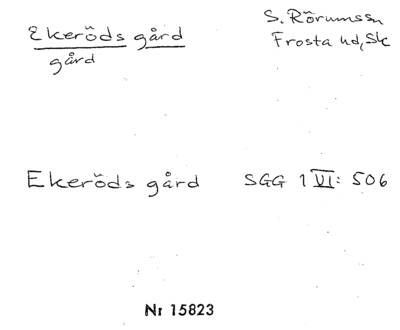 Ekeröds gård
gård
S. Rörumssn
Frosta hd, Sk
Ekeröds gård SGG 1 VI: 506
Nr 15823